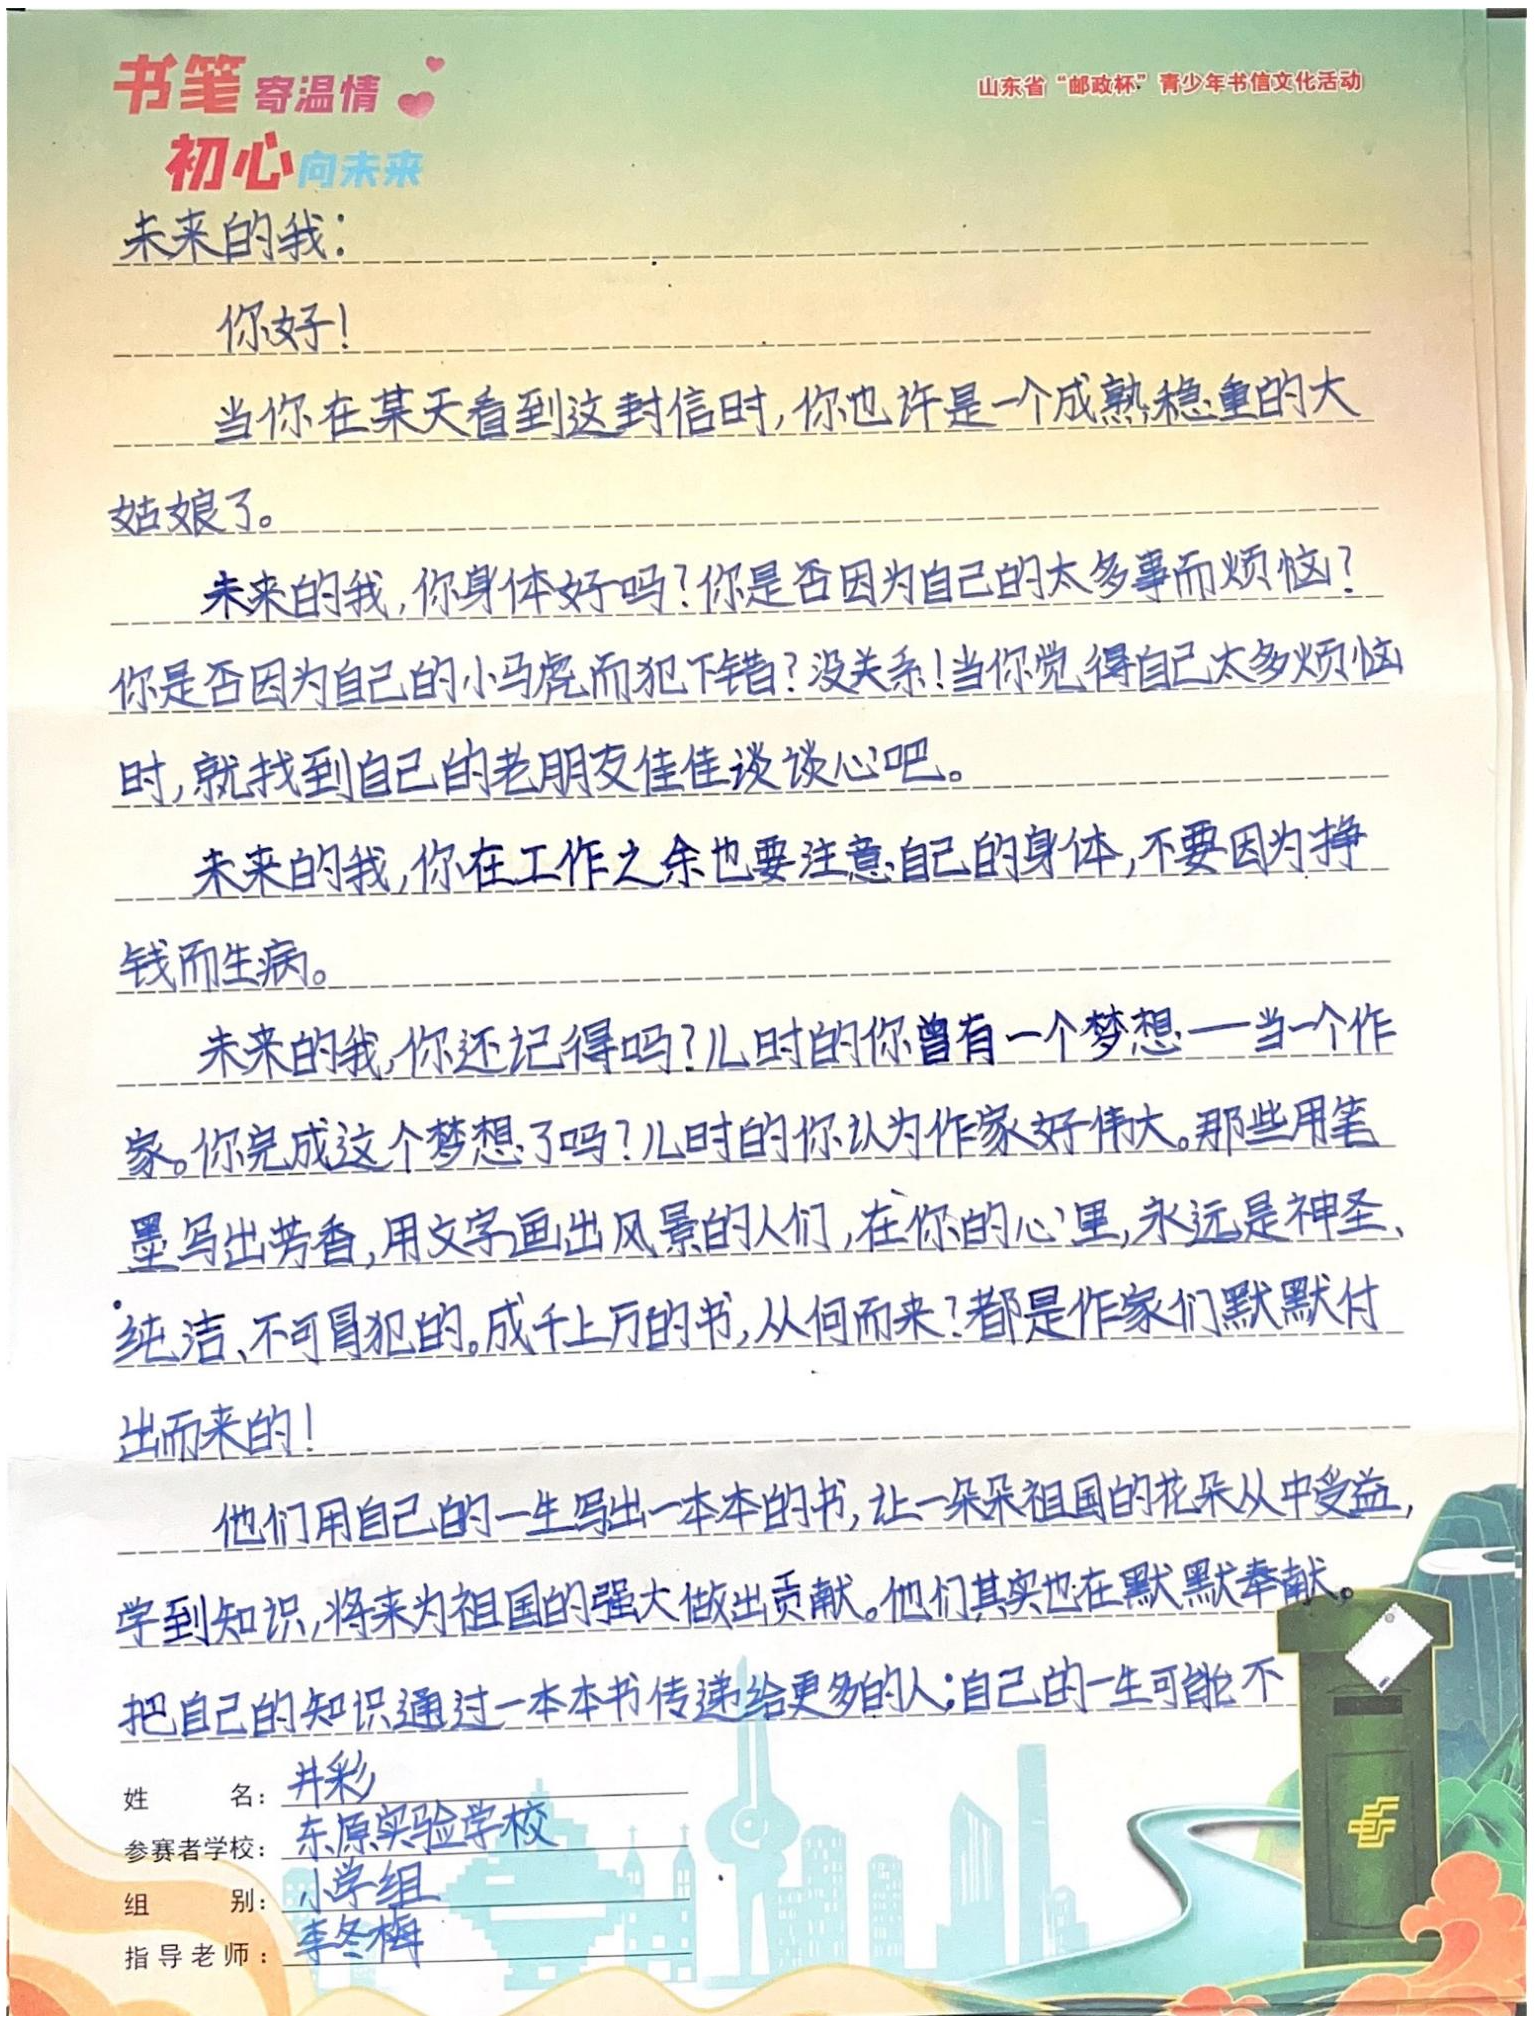 书笔寄温情
初心向未来
山东省“邮政杯”青少年书信文化活动
未来的我：
你好！
当你在某天看到这封信时，你也许是一个成熟稳重的大
姑娘了。
未来的我，你身体好吗？你是否因为自己的太多事而烦恼？
你是否因为自己的小马虎而犯下错？没关系！当你觉得自己太多烦恼
时，就找到自己的老朋友佳佳谈谈心吧。
未来的我，你在工作之余也要注意自己的身体，不要因为挣
钱而生病。
未来的我，你还记得吗？儿时的你曾有一个梦想——当一个作
家。你完成这个梦想了吗？儿时的你认为作家好伟大。那些用笔
墨写出芳香，用文字画出风景的人们，在你的心里，永远是神圣、
纯洁、不可冒犯的。成千上万的书，从何而来？都是作家们默默付
出而来的！
他们用自己的一生写出一本本的书，让一朵朵祖国的花朵从中受益，
学到知识，将来为祖国的强大做出贡献。他们其实也在默默奉献。
把自己的知识通过一本本书传递给更多的人；自己的一生可能不
姓名：井彩
参赛者学校：东原实验学校
组别：小学组
指导老师：李冬梅